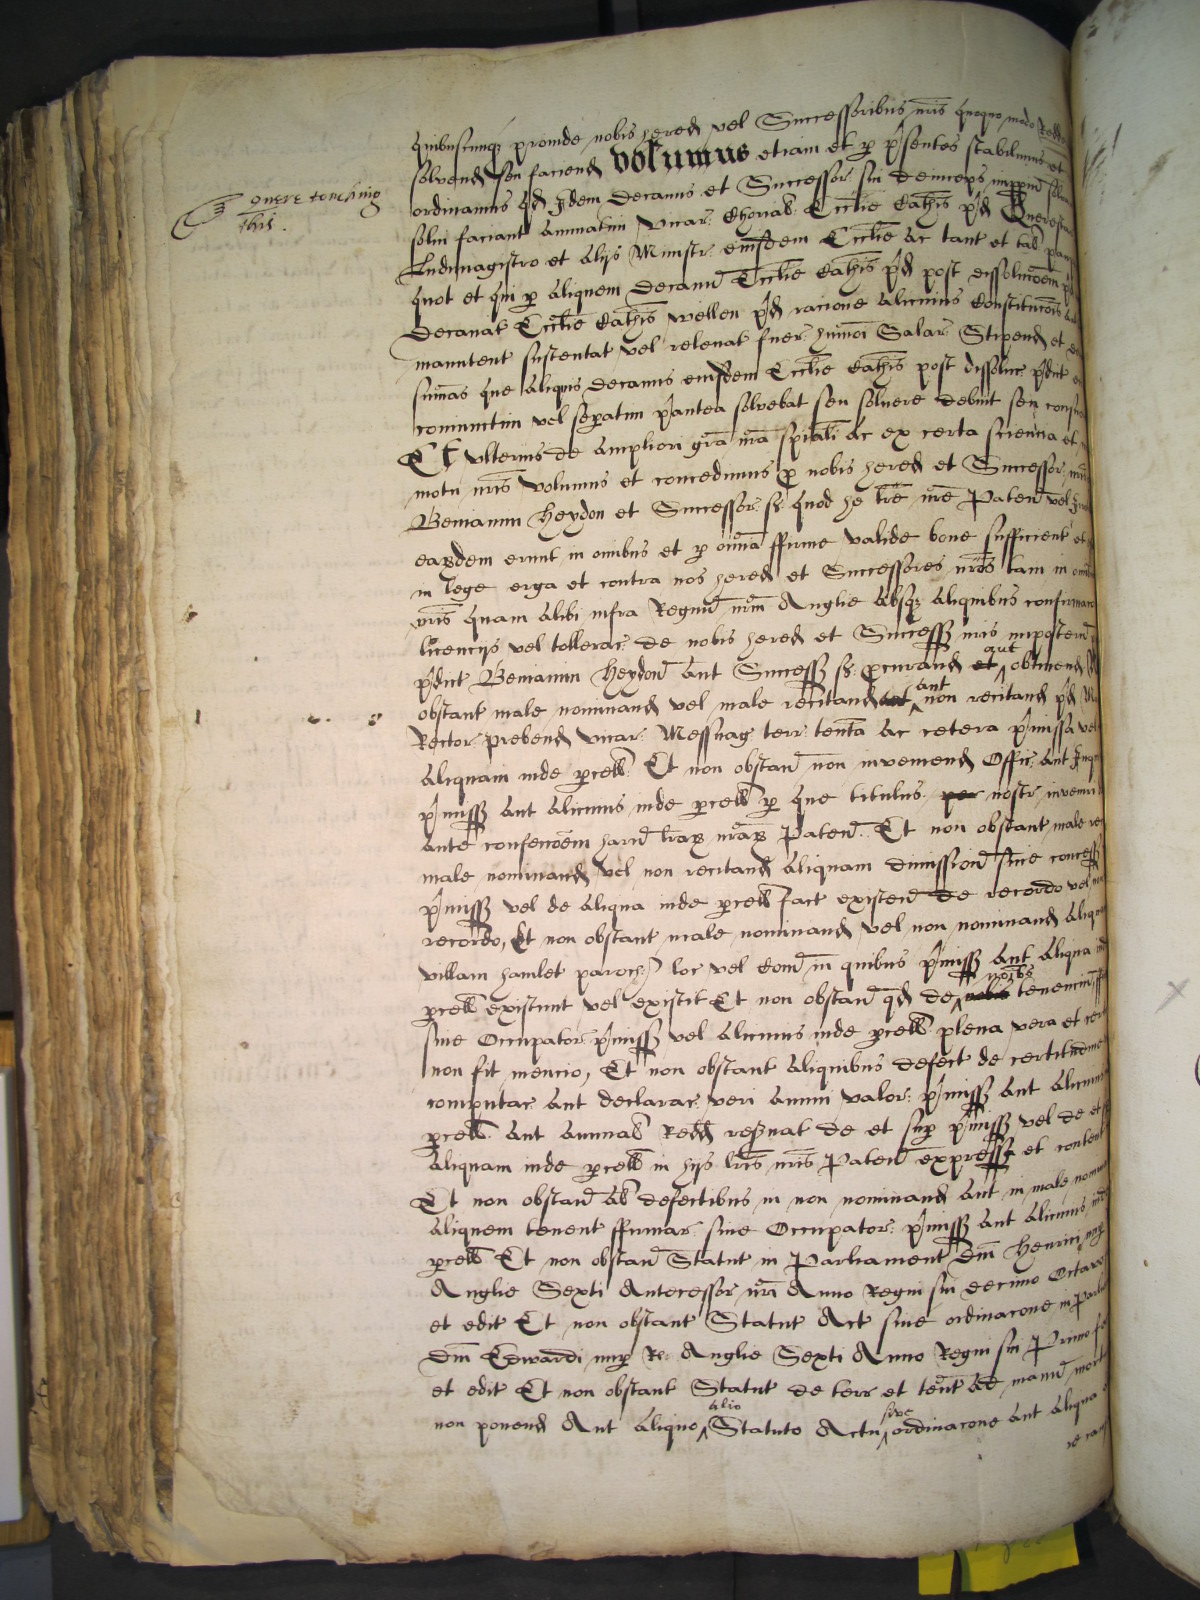 quibuscunq3 proinde nobis hered vel Successoribus nris quoquo modo Redd
solvend seu faciend Volumus etiam et p p'sentes stabilimus et
quere touching
this.
ordinamus qd Idem Decanus et Successor sui deinceps imppm
solvi faciant annuatim vicar Choral Ecclie Cathis p'd
Ludimagistro et Alijs Ministr eiusdem Ecclie Ac tant et tal
quot et qui p Aliquem Decanu Ecclie Cathis p'd post dissolucoem
Decanat Ecclie Cathis wellen p'd racione Alicuius Constitucois
manutent sustentat vel relevat fuer huiusmoi Salar Stipend et
sumas que Aliquis Decanus eiusdem Ecclie Cathis post dissoluc p'dict
coniunctim vel sepatim p'antea solvebat seu solvere debuit seu
Et ulterius de ampliori gra nra spiali Ac ex certa scientia et
motu nris Volumus et concedimus p nobis hered et Successor
Beniamin Heydon et Successor s. quod he lre nre Paten vel
easdem erunt in omibus et p omia ffirme valide bone sufficient et
in lege erga et contra nos hered et Successores nros tam in
nris quam alibi infra Regnu nrm Anglie Absq3 Aliquibus confirmac
licencijs vel tollerac de nobis hered et Success nris imposteru
p'dict Beniamin Heydon Aut Success s. pcurand et aut obtinend
obstant male nominand vel male recitand aut non recitand p'd
Rector prebend vicar Messuag terr tenta Ac cetera p'missa vel
Aliquam inde pcell Et non obstan non inveniend Offic Aut
p'miss Aut Alicuius inde pcell p que titulus per nostr inveniri
ante confeccoem haru lrar nrar Paten Et non obstant male
male nominand vel non recitand Aliquam dimission sive concess
p'miss vel de Aliqua inde pcell fact existen de recordo vel
recordo, Et non obstant male nominand vel non nominand Aliqu
villam hamlet paroch loc vel Com in quibus p'miss Aut Aliqua
pcell existunt vel existit Et non obstan qd de nobis noibs tenenciu
sive Occupator p'miss vel Alicuius inde pcell plena vera et
non fit mencio, Et non obstant Aliquibus defect de certitudine
computac Aut declarac veri annui valor p'miss Aut Alicuius
pcell Aut Annual Redd reservat de et sup p'miss vel de et
Aliquam inde pcell in hijs lris nris Paten express et content
Et non obstan Al defectibus in non nominand Aut in male
Aliquem tenent ffirmar sive Occupator p'miss Aut Alicuius
pcell Et non obstan Statut in Parliament Dni Henrici nup
Anglie Sexti Antecessor nri Anno Regni sui decimo Octavo
et edit Et non obstant Statut Act sive ordinacone in
Dni Edwardi nup R. Anglie Sexti Anno Regni sui Primo
et edit Et non obstant Statut de terr et tent Ad manu
non ponend Aut Aliquo alio Statuto Actu sive ordinacone Aut Aliqua